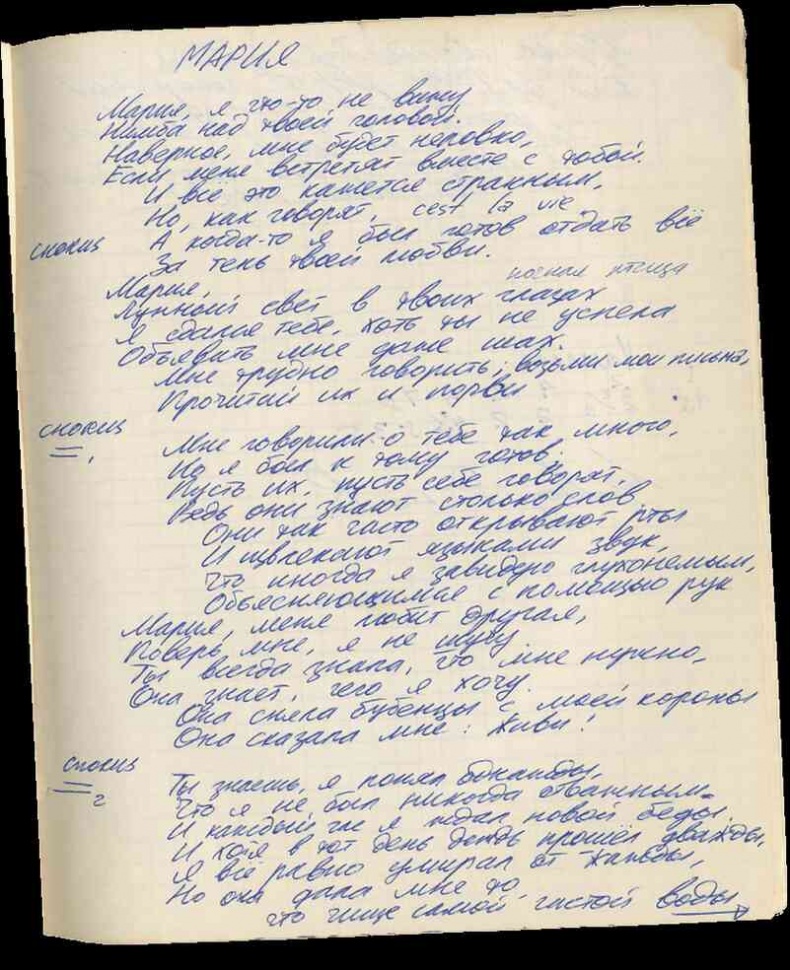 МАРИЯ
Мария, я что-то не вижу
Нимба над твоей головой.
Наверное, мне будет неловко,
Если меня встретят вместе с тобой.
И всё это кажется странным,
Но, как говорят, cest la vie
А когда-то я был готов отдать всё
За тень твоей любви.
Мария,
Лунный свет в твоих глазах
Я сдался тебе, хоть ты не успела
Объявить мне даже шах.
Мне трудно говорить; возьми мои письма,
Прочитай их и порви
Мне говорили о тебе так много,
Но я был к тому готов.
Пусть их, пусть себе говорят,
Ведь они знают столько слов
Они так часто открывают рты
И извлекают языками звук,
Что иногда я завидую глухонемым,
Объясняющимся с помощью рук
Мария, меня любит другая,
Поверь мне, я не шучу
Ты всегда знала, что мне нужно,
Она знает, чего я хочу.
Она сняла бубенцы с моей короны
Она сказала мне: Живи!
Ты знаешь, я понял однажды,
Что я не был никогда отважным
И каждый час я ждал новой беды.
И хотя в тот день дождь прошёл дважды,
Я всё равно умирал от жажды,
Но она дала мне то,
что чище самой чистой воды